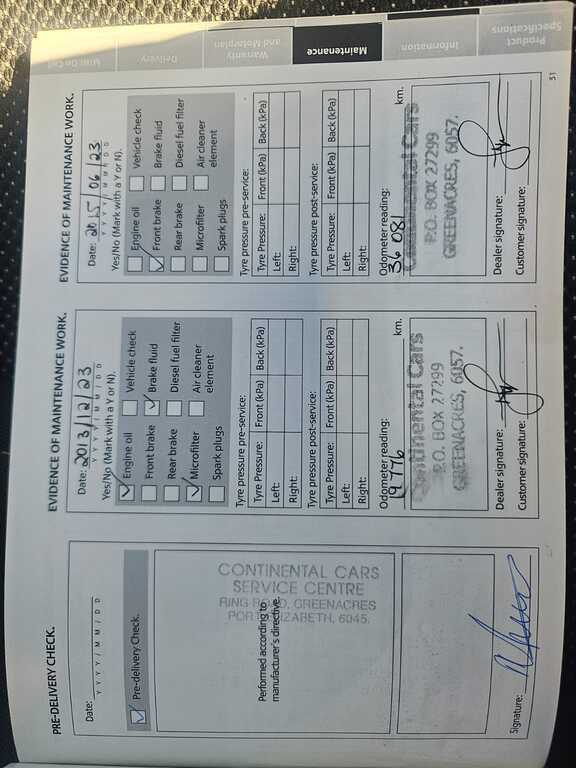 Mini On Call
Delivery
Warranty
and Motorplan
Maintenance
Information
Product
Specifications
PRE-DELIVERY CHECK.
Date:
Y Y Y Y / M M / D D
Pre-delivery Check.
Performed according to
manufacturer's directive.
CONTINENTAL CARS
SERVICE CENTRE
RING ROAD, GREENACRES
PORT ELIZABETH, 6045.
Signature:
EVIDENCE OF MAINTENANCE WORK.
Date: 2013/12/23
Y Y Y Y / M M / D D
Yes/No (Mark with a Y or N).
Engine oil Vehicle check
Front brake Brake fluid
Rear brake Diesel fuel filter
Microfilter Air cleaner
element
Spark plugs
Tyre pressure pre-service:
Tyre Pressure: Front (kPa) Back (kPa)
Left:
Right:
Tyre pressure post-service:
Tyre Pressure: Front (kPa) Back (kPa)
Left:
Right:
Odometer reading:
19776 km.
Continental Cars
P.O. BOX 27299
GREENACRES, 6057.
Dealer signature:
Customer signature:
EVIDENCE OF MAINTENANCE WORK.
Date: 2015/06/23
Y Y Y Y / M M / D D
Yes/No (Mark with a Y or N).
Engine oil Vehicle check
Front brake Brake fluid
Rear brake Diesel fuel filter
Microfilter Air cleaner
element
Spark plugs
Tyre pressure pre-service:
Tyre Pressure: Front (kPa) Back (kPa)
Left:
Right:
Tyre pressure post-service:
Tyre Pressure: Front (kPa) Back (kPa)
Left:
Right:
Odometer reading:
36 081 km.
Continental Cars
P.O. BOX 27299
GREENACRES, 6057.
Dealer signature:
Customer signature:
51